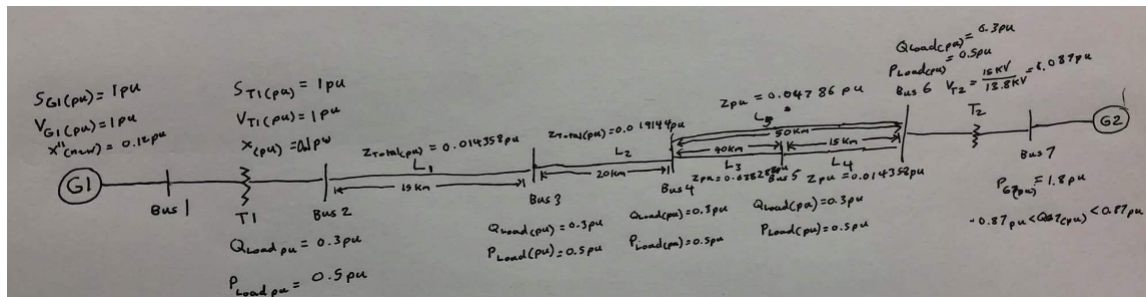 S G1(pu) = 1pu
V G1(pu) = 1pu
X"(new) = 0.12pu
G1
Bus 1
S T1(pu) = 1pu
V T1(pu) = 1pu
X(pu) =
T1
Q Load pu = 0.3pu
P Load pu = 0.5pu
Bus 2
Z Total(pu) = 0.014358pu
L1
15Km
Bus 3
Q Load(pu) = 0.3pu
P Load(pu) = 0.5pu
Z Total(pu) = 0.019144pu
L2
20Km
Bus 4
Q Load(pu) = 0.3pu
P Load(pu) = 0.5pu
Zpu = 0.04786 pu
L5
50Km
40Km
L3
Bus 5
Q Load(pu) = 0.3pu
P Load(pu) = 0.5pu
15Km
L4
Zpu = 0.014358pu
Q Load(pu) = 0.3pu
P Load(pu) = 0.5pu
Bus 6
V T2 = 15KV / 13.8KV = 1.087pu
T2
G2
Bus 7
P G2(pu) = 1.8pu
-0.87pu < Q G2(pu) < 0.87pu